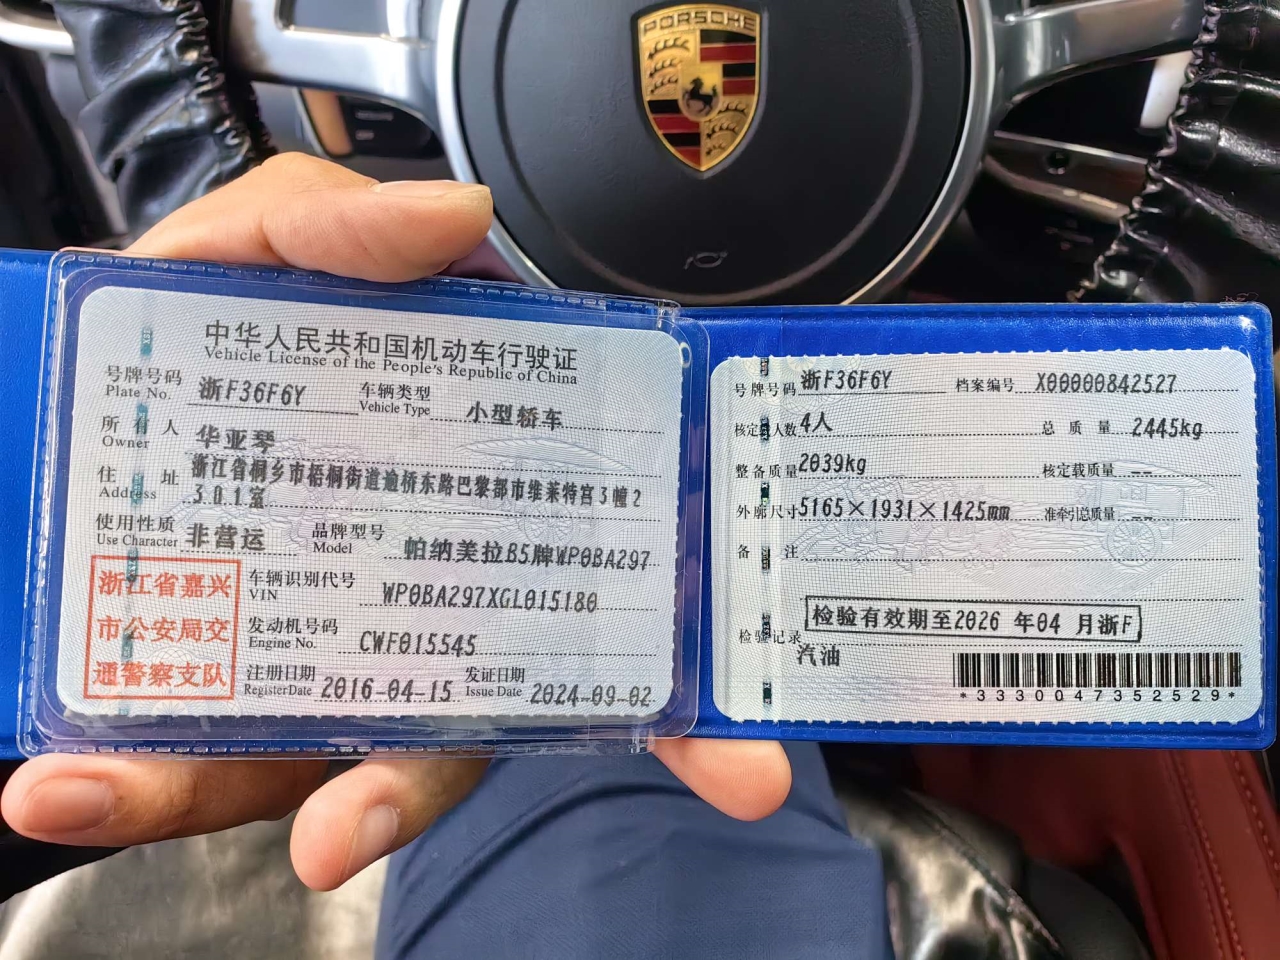 PORSCHE
中华人民共和国机动车行驶证
Vehicle License of the People's Republic of China
号牌号码 浙F36F6Y 车辆类型 小型轿车
Plate No. Vehicle Type
所有人 华亚琴
Owner
住址 浙江省桐乡市梧桐街道逾桥东路巴黎都市维莱特宫3幢2
Address 301室
使用性质 非营运 品牌型号 帕纳美拉B5牌WP0BA297
Use Character Model
浙江省嘉兴
市公安局交
通警察支队
车辆识别代号 WP0BA297XGL015180
VIN
发动机号码 CWF015545
Engine No.
注册日期 2016-04-15 发证日期 2024-09-02
Register Date Issue Date
号牌号码 浙F36F6Y 档案编号 X00000842527
核定载人数 4人 总质量 2445kg
整备质量 2039kg 核定载质量 --
外廓尺寸 5165×1931×1425mm 准牵引总质量 --
备注
检验有效期至2026 年04 月浙F
检验记录
汽油
*3330047352529*